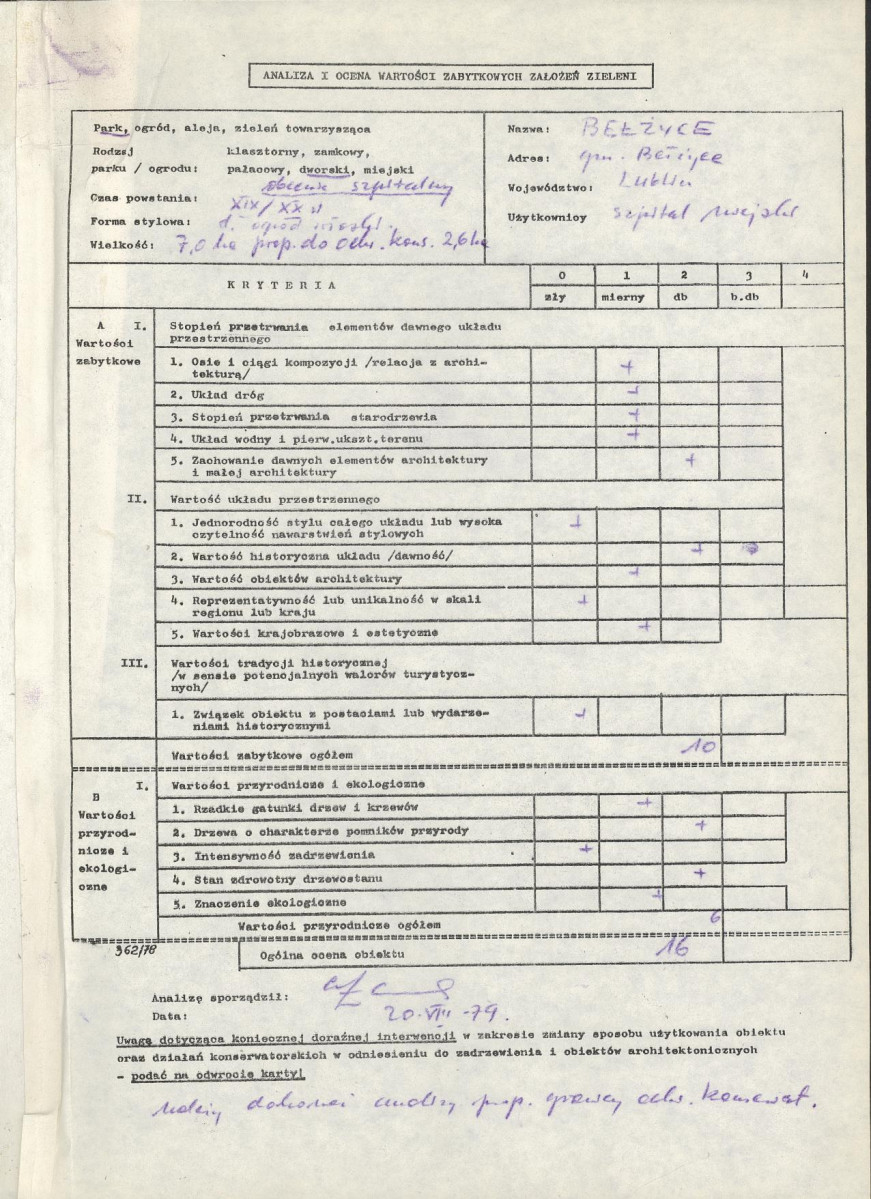 ANALIZA I OCENA WARTOŚCI ZABYTKOWYCH ZAŁOŻEŃ ZIELENI
Park, ogród, aleja, zieleń towarzysząca
Rodzaj klasztorny, zamkowy,
parku / ogrodu: pałacowy, dworski, miejski
obecnie szpitalny
Czas powstania: XIX/XX w
Forma stylowa: d. ogród włoski.
Wielkość: 7,0 ha prop. do ochr. kons. 2,6 ha
Nazwa: BEŁŻYCE
Adres: gm. Bełżyce
Województwo: Lublin
Użytkownicy szpital miejski
KRYTERIA 0 1 2 3 4
zły mierny db b.db
A I. Stopień przetrwania elementów dawnego układu
Wartości przestrzennego
zabytkowe 1. Osie i ciągi kompozycji /relacja z archi-
tekturą/ +
2. Układ dróg +
3. Stopień przetrwania starodrzewia +
4. Układ wodny i pierw.ukszt.terenu +
5. Zachowanie dawnych elementów architektury
i małej architektury +
II. Wartość układu przestrzennego
1. Jednorodność stylu całego układu lub wysoka
czytelność nawarstwień stylowych +
2. Wartość historyczna układu /dawność/ +
3. Wartość obiektów architektury +
4. Reprezentatywność lub unikalność w skali
regionu lub kraju +
5. Wartości krajobrazowe i estetyczne +
III. Wartości tradycji historycznej
/w sensie potencjalnych walorów turystycz-
nych/
1. Związek obiektu z postaciami lub wydarze-
niami historycznymi +
Wartości zabytkowe ogółem 10
I. Wartości przyrodnicze i ekologiczne
B
Wartości
przyrod-
nicze i
ekologi-
czne
1. Rzadkie gatunki drzew i krzewów +
2. Drzewa o charakterze pomników przyrody +
3. Intensywność zadrzewienia +
4. Stan zdrowotny drzewostanu +
5. Znaczenie ekologiczne +
Wartości przyrodnicze ogółem 6
362/78
Ogólna ocena obiektu 16
Analizę sporządził:
Data: 20.VIII-79.
Uwagę dotyczącą koniecznej doraźnej interwencji w zakresie zmiany sposobu użytkowania obiektu
oraz działań konserwatorskich w odniesieniu do zadrzewienia i obiektów architektonicznych
- podać na odwrocie karty!
należy dokonać analizy prop. granicy ochr. konserwat.